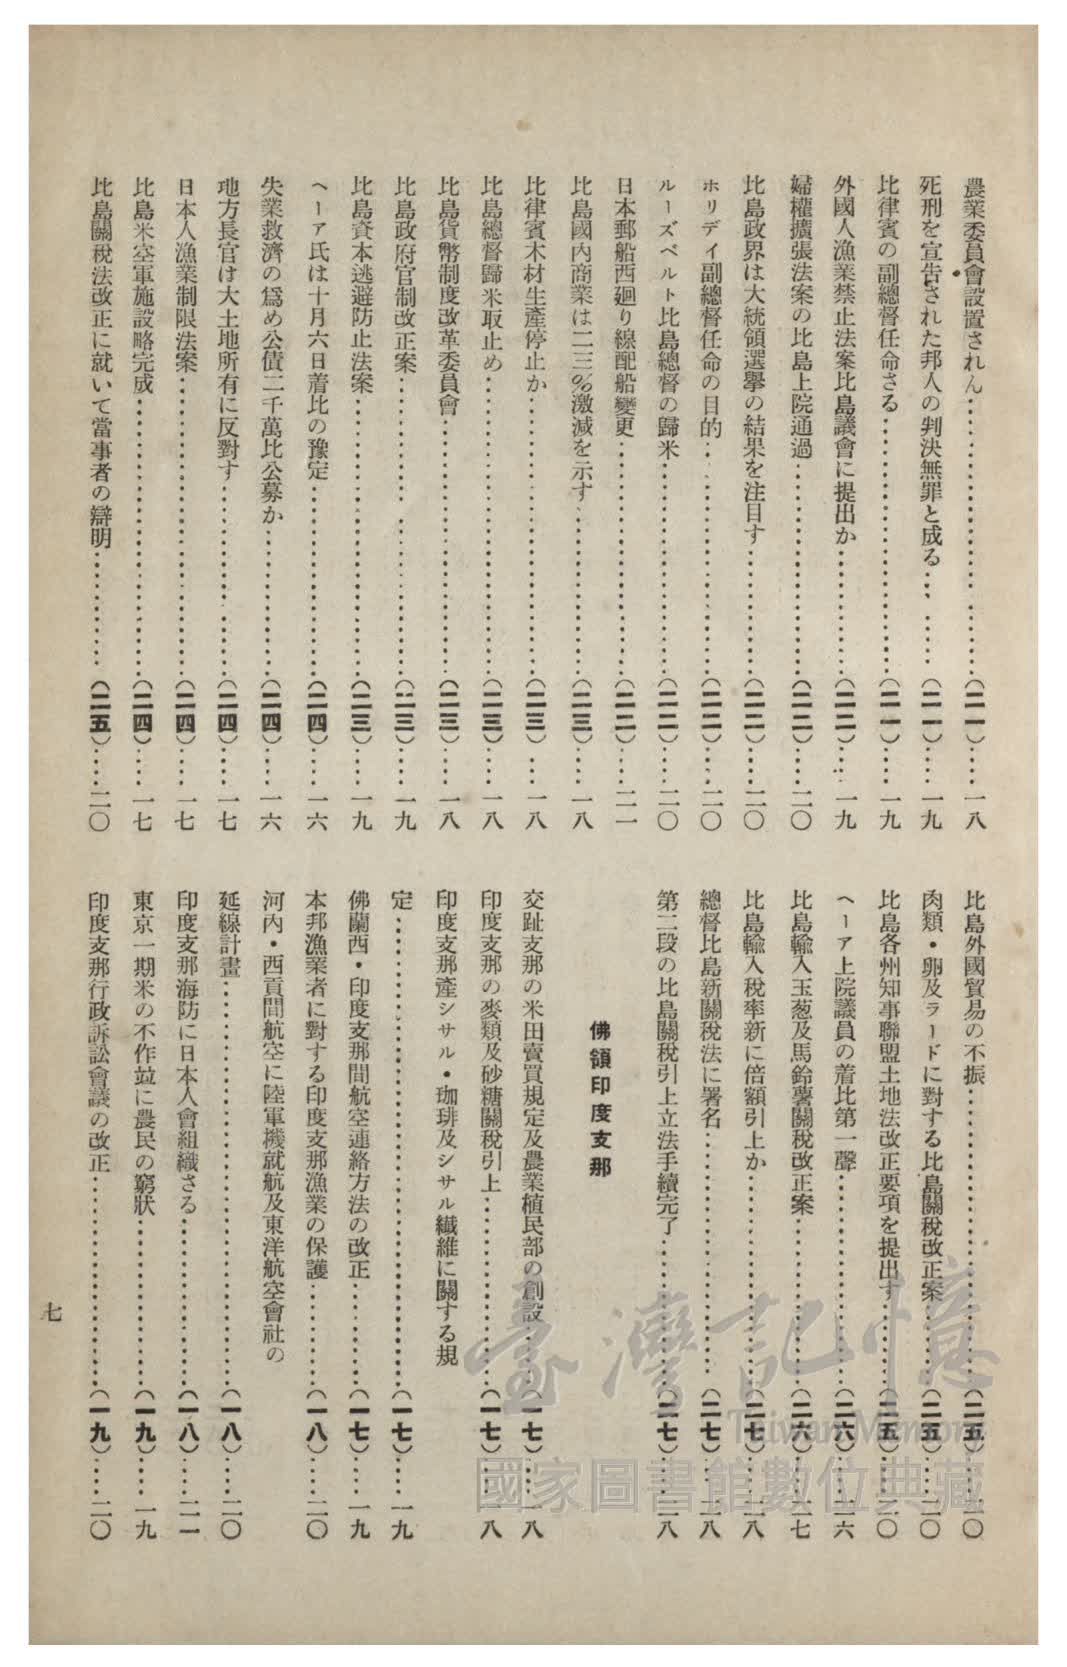 農業委員會設置されん……(二一)……一八
死刑を宣告された邦人の判決無罪と成る……(二一)……一九
比律賓の副總督任命さる……(二一)……一九
外國人漁業禁止法案比島議會に提出か……(二二)……一九
婦權擴張法案の比島上院通過……(二二)……二〇
比島政界は大統領選擧の結果を注目す……(二二)……二〇
ホリデイ副總督任命の目的……(二二)……二〇
ルーズベルト比島總督の歸米……(二二)……二〇
日本郵船西廻り線配船變更……(二二)……二一
比島國內商業は二三%激減を示す……(二三)……一八
比律賓木材生產停止か……(二三)……一八
比島總督歸米取止め……(二三)……一八
比島貨幣制度改革委員會……(二三)……一八
比島政府官制改正案……(二三)……一九
比島資本逃避防止法案……(二三)……一九
ヘーア氏は十月六日着比の豫定……(二四)……一六
失業救濟の爲め公債二千萬比公募か……(二四)……一六
地方長官は大土地所有に反對す……(二四)……一七
日本人漁業制限法案……(二四)……一七
比島米空軍施設略完成……(二四)……一七
比島關稅法改正に就いて當事者の辯明……(二五)……二〇
比島外國貿易の不振……(二五)……二〇
肉類・卵及ラードに對する比島關稅改正案……(二五)……二〇
比島各州知事聯盟土地法改正要項を提出す……(二五)……二〇
ヘーア上院議員の着比第一聲……(二六)……一六
比島輸入玉葱及馬鈴薯關稅改正案……(二六)……一七
比島輸入稅率新に倍額引上か……(二七)……一八
總督比島新關稅法に署名……(二七)……一八
第二段の比島關稅引上立法手續完了……(二七)……一八
佛領印度支那
交趾支那の米田賣買規定及農業植民部の創設……(一七)……一八
印度支那の麥類及砂糖關稅引上……(一七)……一八
印度支那產シサル・珈琲及シサル纖維に關する規
定……(一七)……一九
佛蘭西・印度支那間航空連絡方法の改正……(一七)……一九
本邦漁業者に對する印度支那漁業の保護……(一八)……二〇
河內・西貢間航空に陸軍機就航及東洋航空會社の
延線計畫……(一八)……二〇
印度支那海防に日本人會組織さる……(一八)……二一
東京一期米の不作並に農民の窮狀……(一九)……一九
印度支那行政訴訟會議の改正……(一九)……二〇
七
臺灣記憶
Taiwan Memory
國家圖書館數位典藏